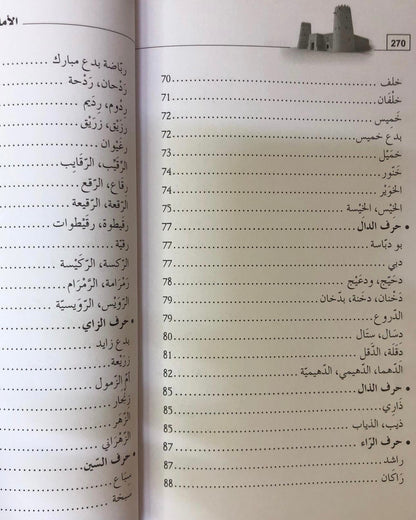 270
خلف 70
خلْفَان 71
خَميس 72
بدع خميس 72
خمَيْل 73
خَنّور 74
الخَوَيْر 74
الخَيْس، الخَيْسة 75
• حرف الدال 77
بو دبّاسة 77
دبي 77
دحَيّج، ودعَيْج 78
دَخْنان، دخنة، بدّخان 79
الدروع 79
دسَال، ستَال 80
دقَلَة، الدّقل 81
الدّهما، الدّهيمي، الدّهيميّة 82
• حرف الذال 85
ذَاري 85
ذيب، الذياب 85
• حرف الرّاء 87
راشد 87
رَاكَان 88
الأما
ربّاضة بدع مبارك
رَدْحان، رَدْحة
ردُوم، رِدَيم
رزَيْق، زرَيْق
رغَيْوان
الرّقَيْب، الرّقايب
رقَاع، الرّقع
الرّقعة، الرّقيعة
رقَيطوة، رقَيْطوات
رقيّة
الرّكسة، الرّكَيْسة
رَمْرامة، الرَّمْرَام
الرَّوَيْس، الرّوَيسيّة
• حرف الزاي
بدع زايد
زرَيْعة
أمّ الزّمول
زنْجَار
الزّهَر
الزّهْرَاني
• حرف السّين
سِبَاع
سبخة